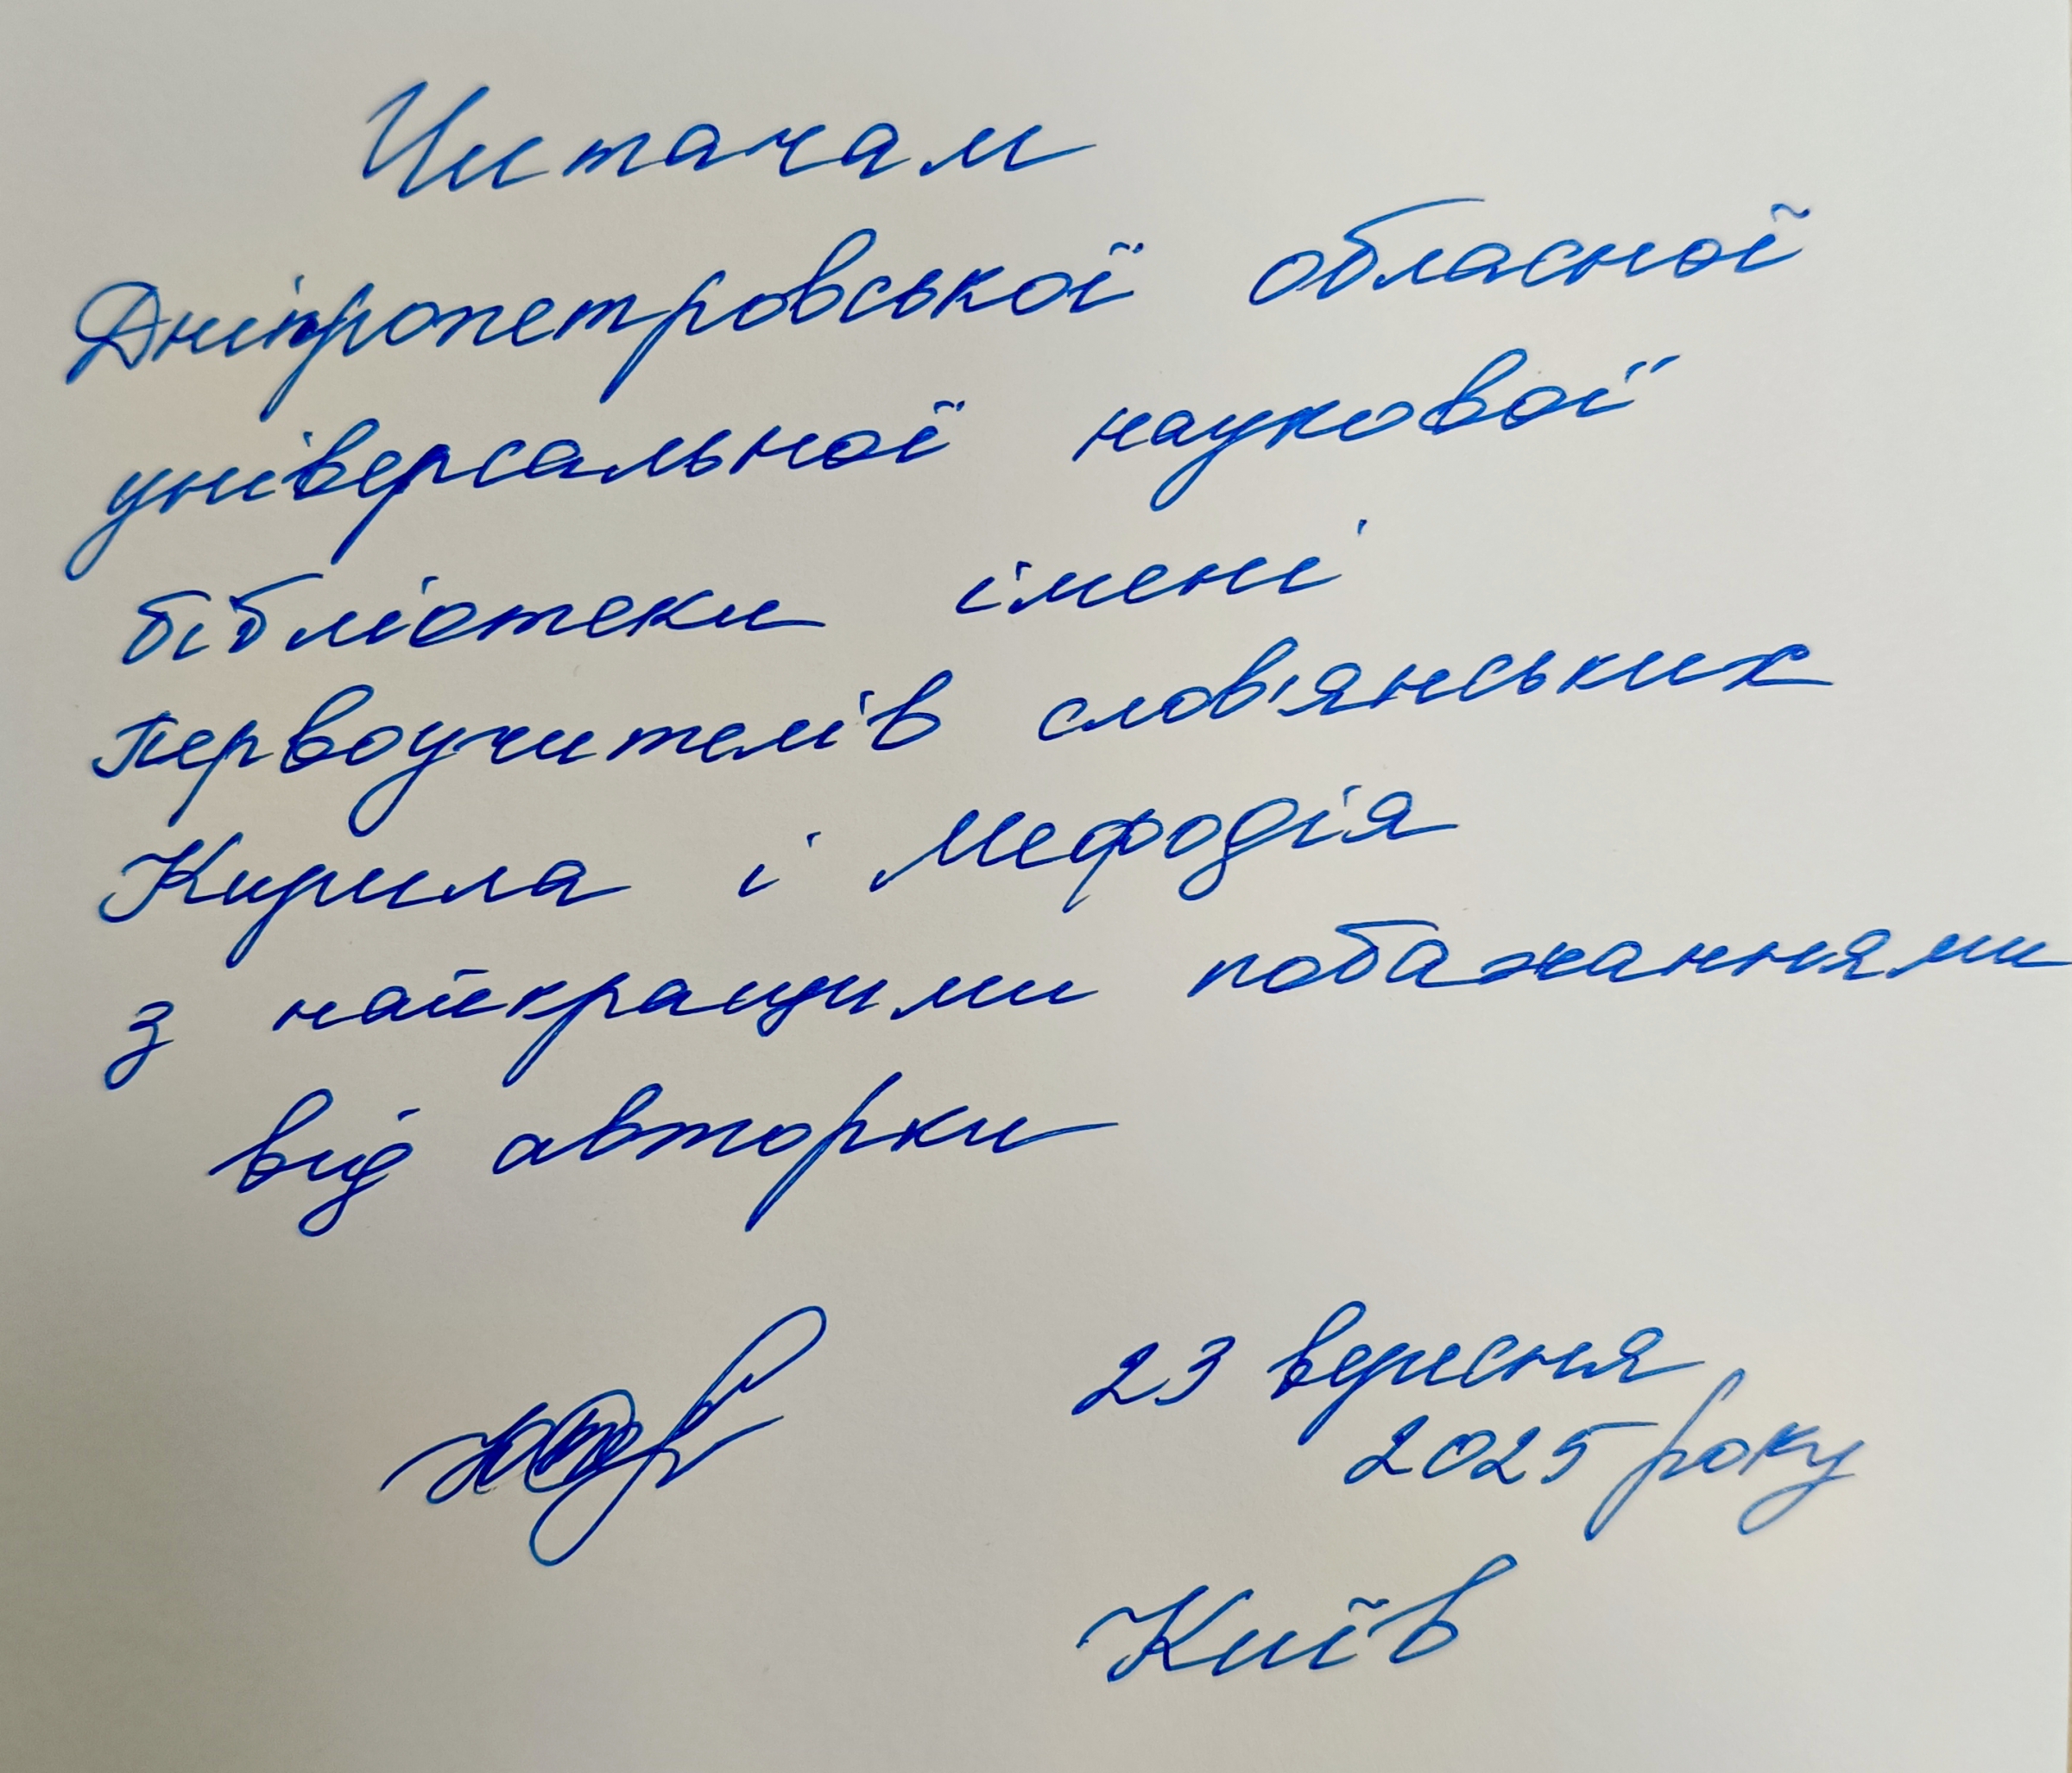 Читачам
Дніпропетровської обласної
універсальної наукової
бібліотеки імені
первоучителів слов'янських
Кирила і Мефодія
з найкращими побажаннями
від авторки
23 вересня
2025 року
Київ